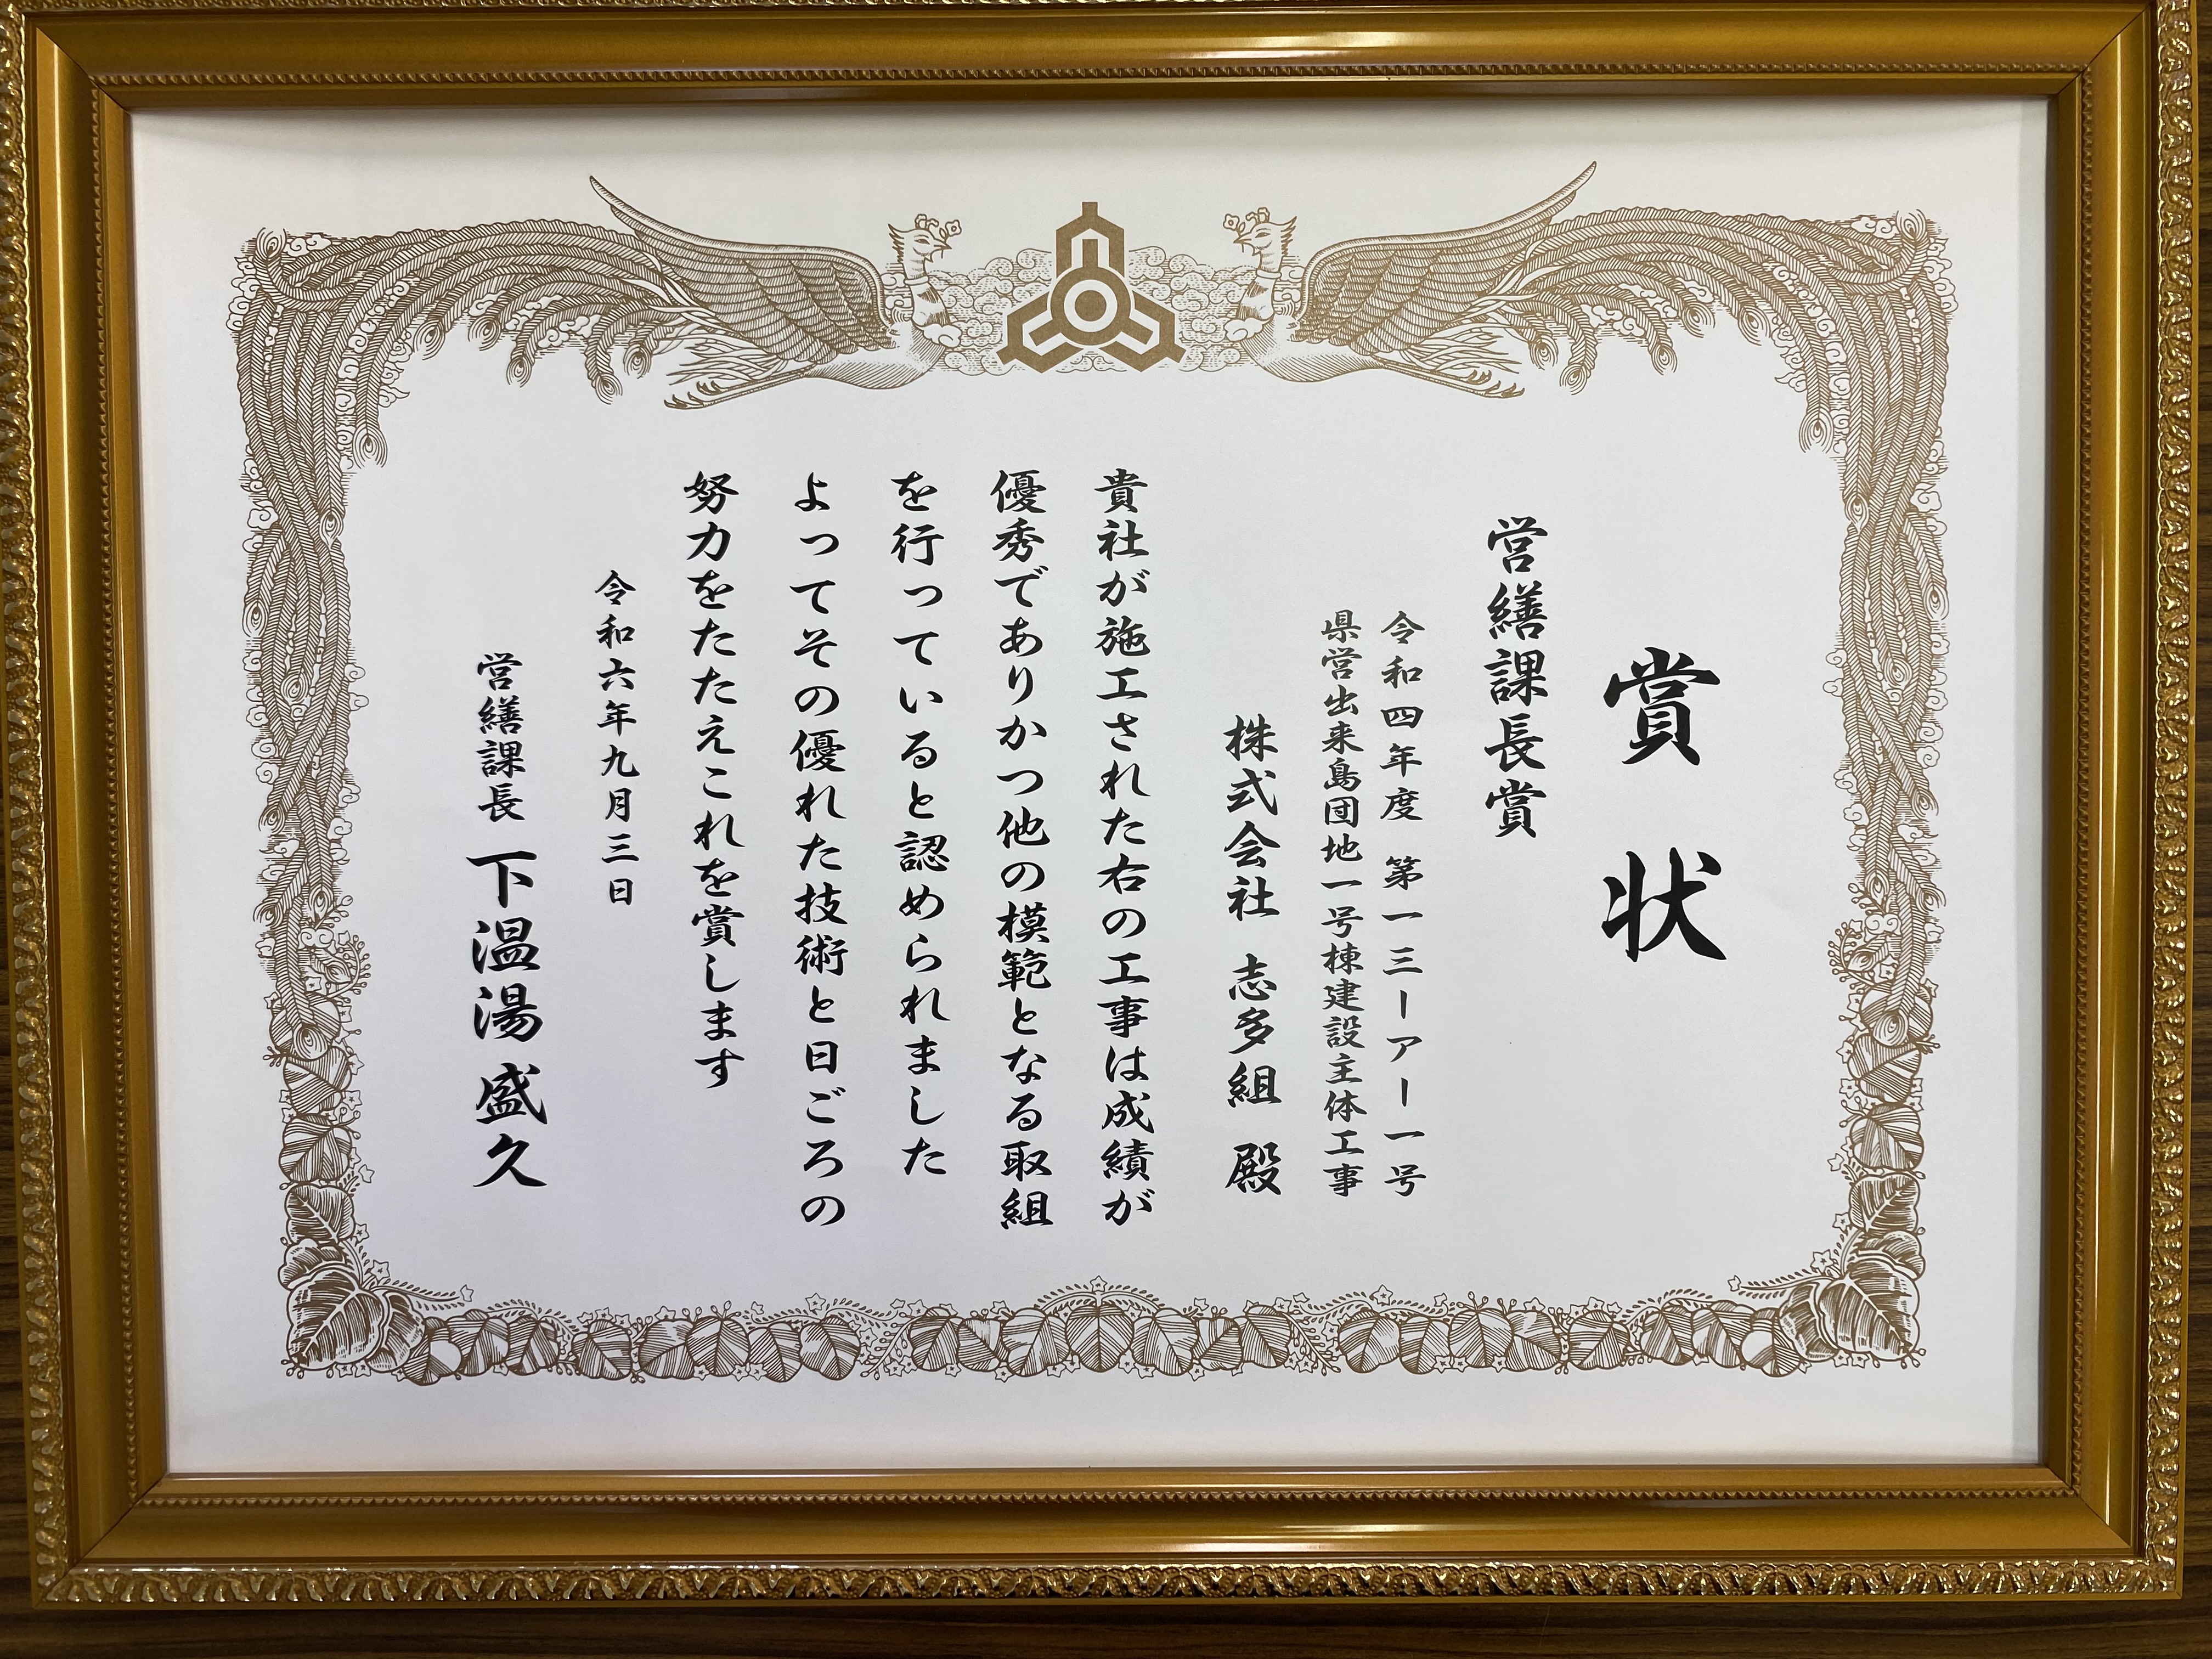 賞状
営繕課長賞
令和四年度 第一三ーアー一号
県営出来島団地一号棟建設主体工事
株式会社 志多組 殿
貴社が施工された右の工事は成績が
優秀でありかつ他の模範となる取組
を行っていると認められました
よってその優れた技術と日ごろの
努力をたたえこれを賞します
令和六年九月三日
営繕課長 下温湯 盛久